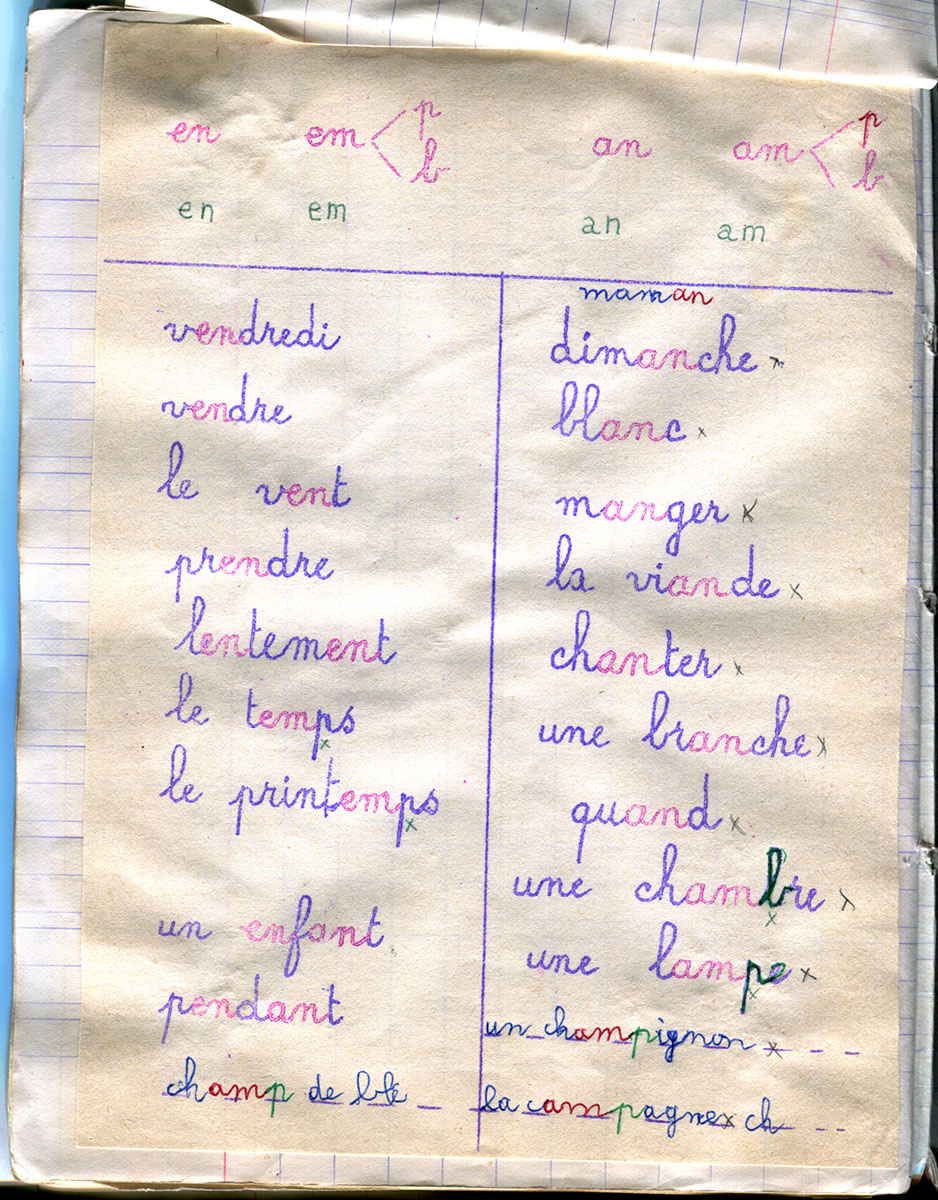 en em < p b
an am < p b
en em
an am
vendredi
vendre
le vent
prendre
lentement
le temps
le printemps
un enfant
pendant
champ de blé
maman
dimanche x
blanc x
manger x
la viande x
chanter x
une branche x
quand x
une chambre x
une lampe x
un champignon x
la campagne x ch